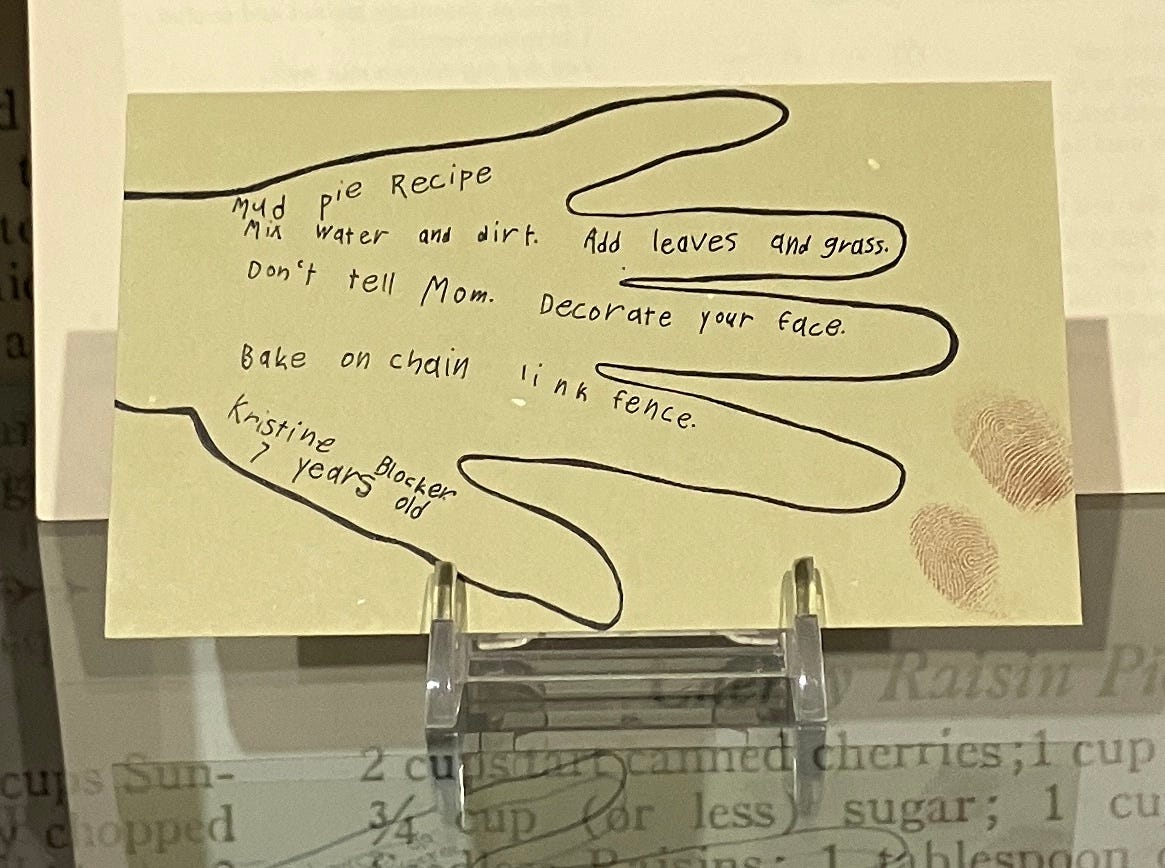 Mud pie Recipe
Mix water and dirt. Add leaves and grass.
Don't tell Mom. Decorate your face.
Bake on chain link fence.
Kristine Blocker
7 years old
Raisin Pi
cups Sun-
2 cups tart canned cherries; 1 cup
chopped
3/4 cup (or less) sugar; 1 cu
Raisins; 1 tablespoon